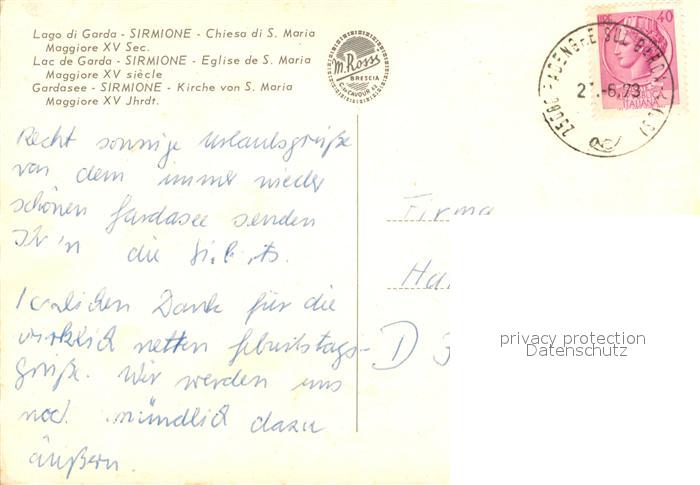 Lago di Garda - SIRMIONE - Chiesa di S. Maria
Maggiore XV Sec.
Lac de Garda - SIRMIONE - Eglise de S. Maria
Maggiore XV siècle
Gardasee - SIRMIONE - Kirche von S. Maria
Maggiore XV Jhrdt.
M. Rossi
BRESCIA
C. so CAVOUR 42
40
ITALIANA
25080 PADENGHE SUL GARDA (BS)
-6.73
Recht sonnige Urlaubsgrüße
von dem immer wieder
schönen Gardasee senden
die
Herzlichen Dank für die
wirklich netten Geburtstags-
grüße. Wir werden uns
noch mündlich dazu
äußern.
Firma
Ha
D
privacy protection
Datenschutz